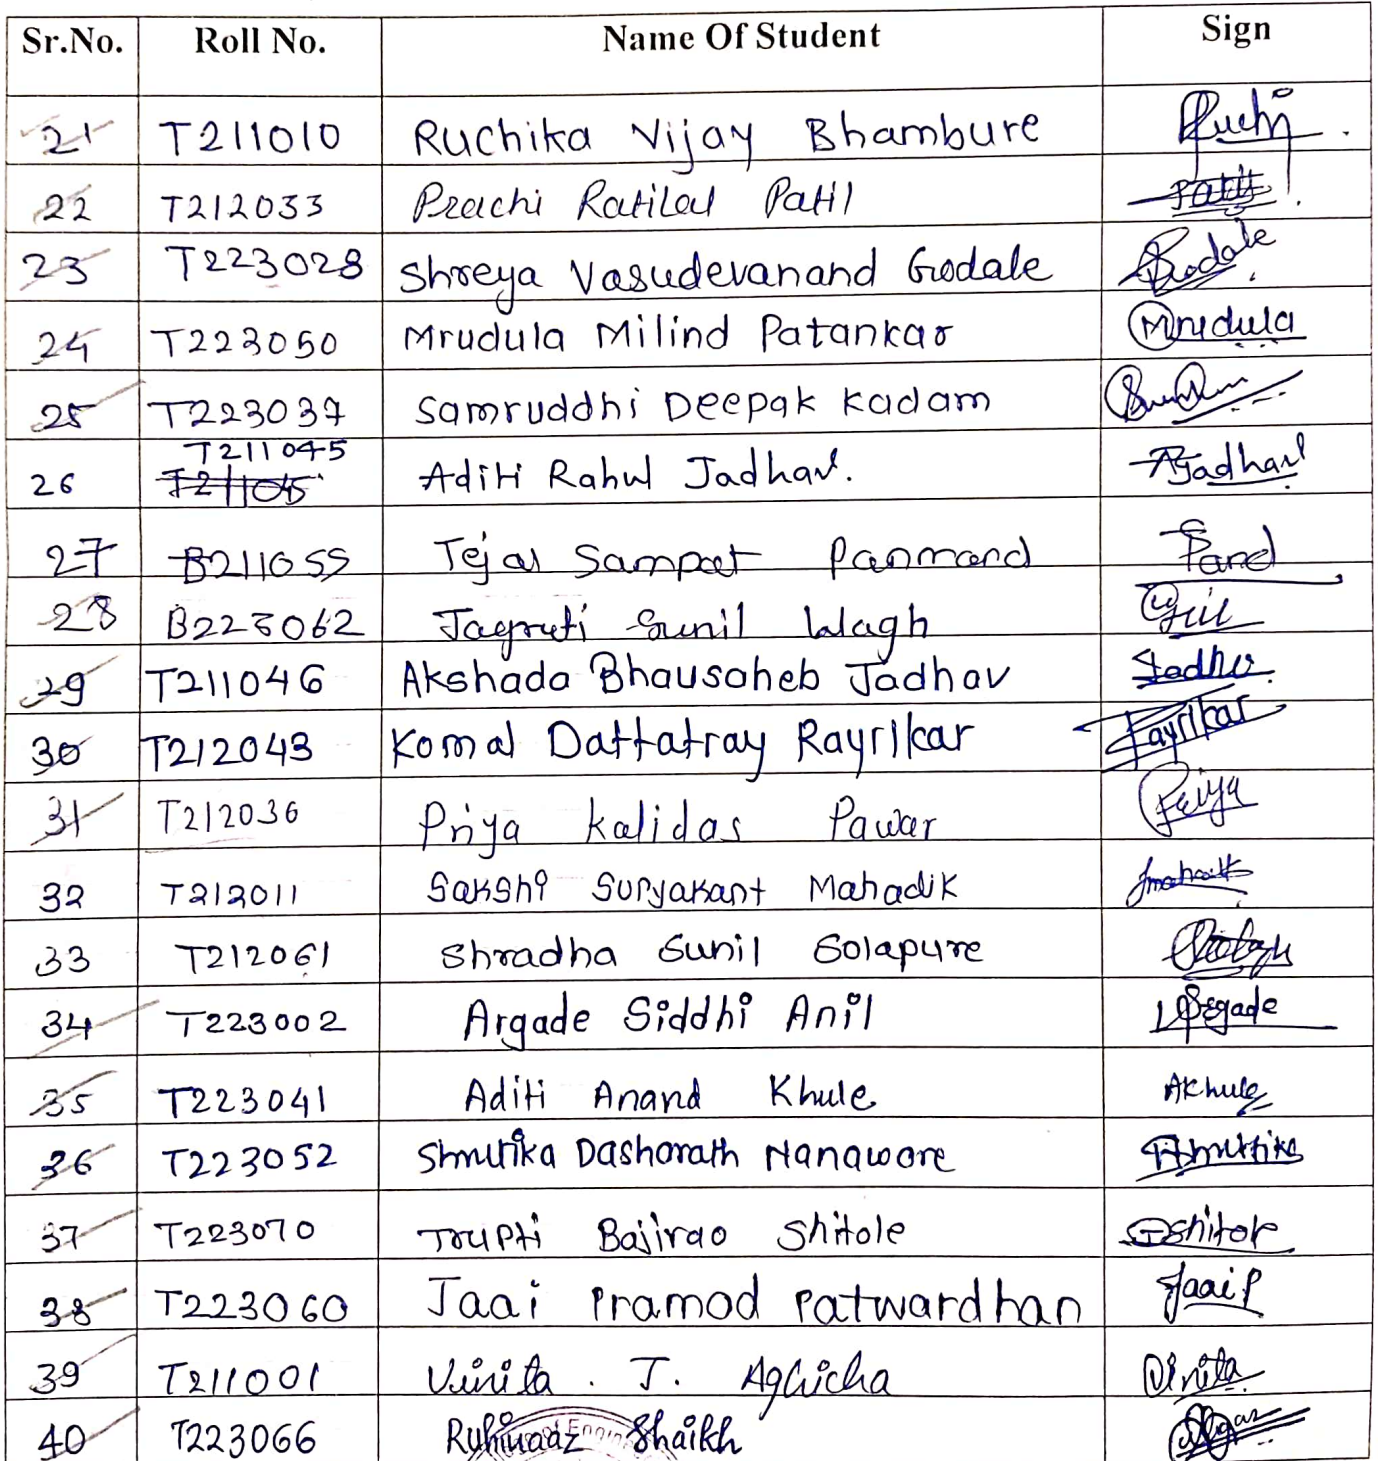 Sr.No. Roll No. Name Of Student Sign
21 T211010 Ruchika Vijay Bhambure Ruchi
22 T212033 Prachi Ratilal Patil Patil
23 T223028 Shreya Vasudevanand Godale Godale
24 T223050 Mrudula Milind Patankar Mrudula
25 T223037 Samruddhi Deepak Kadam
T211045
26 T21105 Aditi Rahul Jadhav. AJadhav
27 B211055 Tejal Sampat Panmand Pand
28 B223062 Jagruti Sunil Wagh
29 T211046 Akshada Bhausaheb Jadhav Jadhav
30 T212043 Komal Dattatray Rayrikar Rayrikar
31 T212036 Priya Kalidas Pawar Priya
32 T212011 Sakshi Suryakant Mahadik
33 T212061 Shradha Sunil Solapure
34 T223002 Argade Siddhi Anil Argade
35 T223041 Aditi Anand Khule AKhule
36 T223052 Shrutika Dasharath Nanaware Shrutika
37 T223070 Trupti Bajirao Shitole
38 T223060 Jaai Pramod Patwardhan Jaai P
39 T211001 Vinita . J. Aghicha Vinita
40 T223066 Ruhinaaz Shaikh